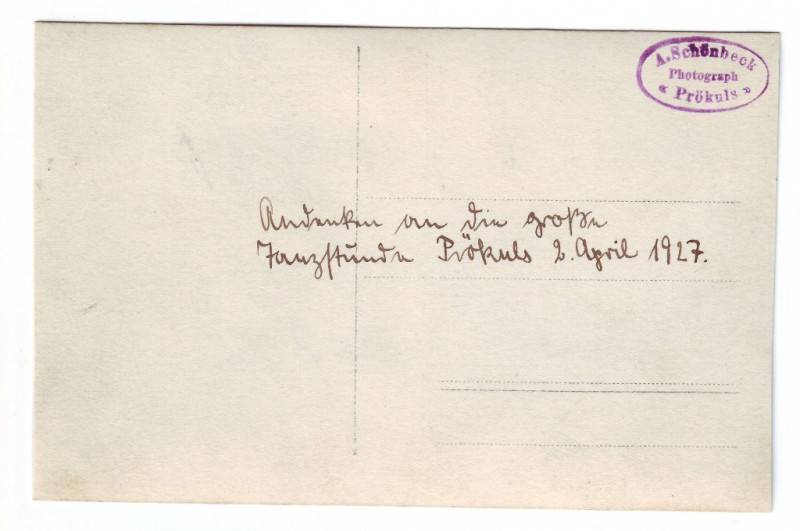 A. Schönbeck
Photograph
« Prökuls »
Andenken an die große
Tanzstunde Prökuls 2. April 1927.